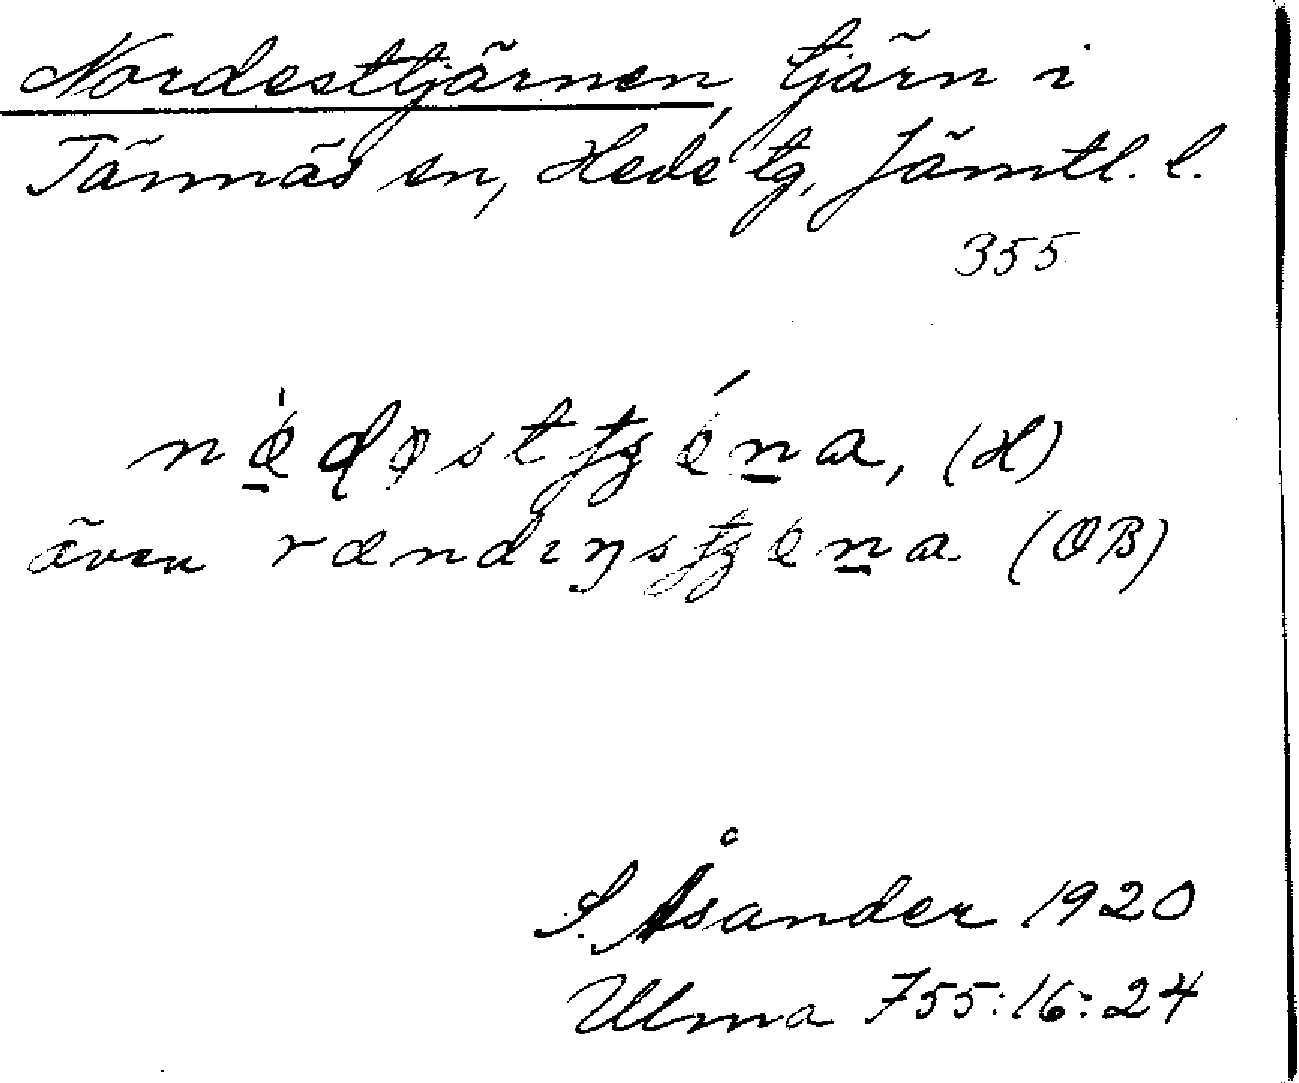 Nordesttjärnen, tjärn i
Tännäs sn, Hede tg, Jämtl. l.
355
(H)
även rændıŋs (OB)
S. Åsander 1920
Ulma 755:16:24